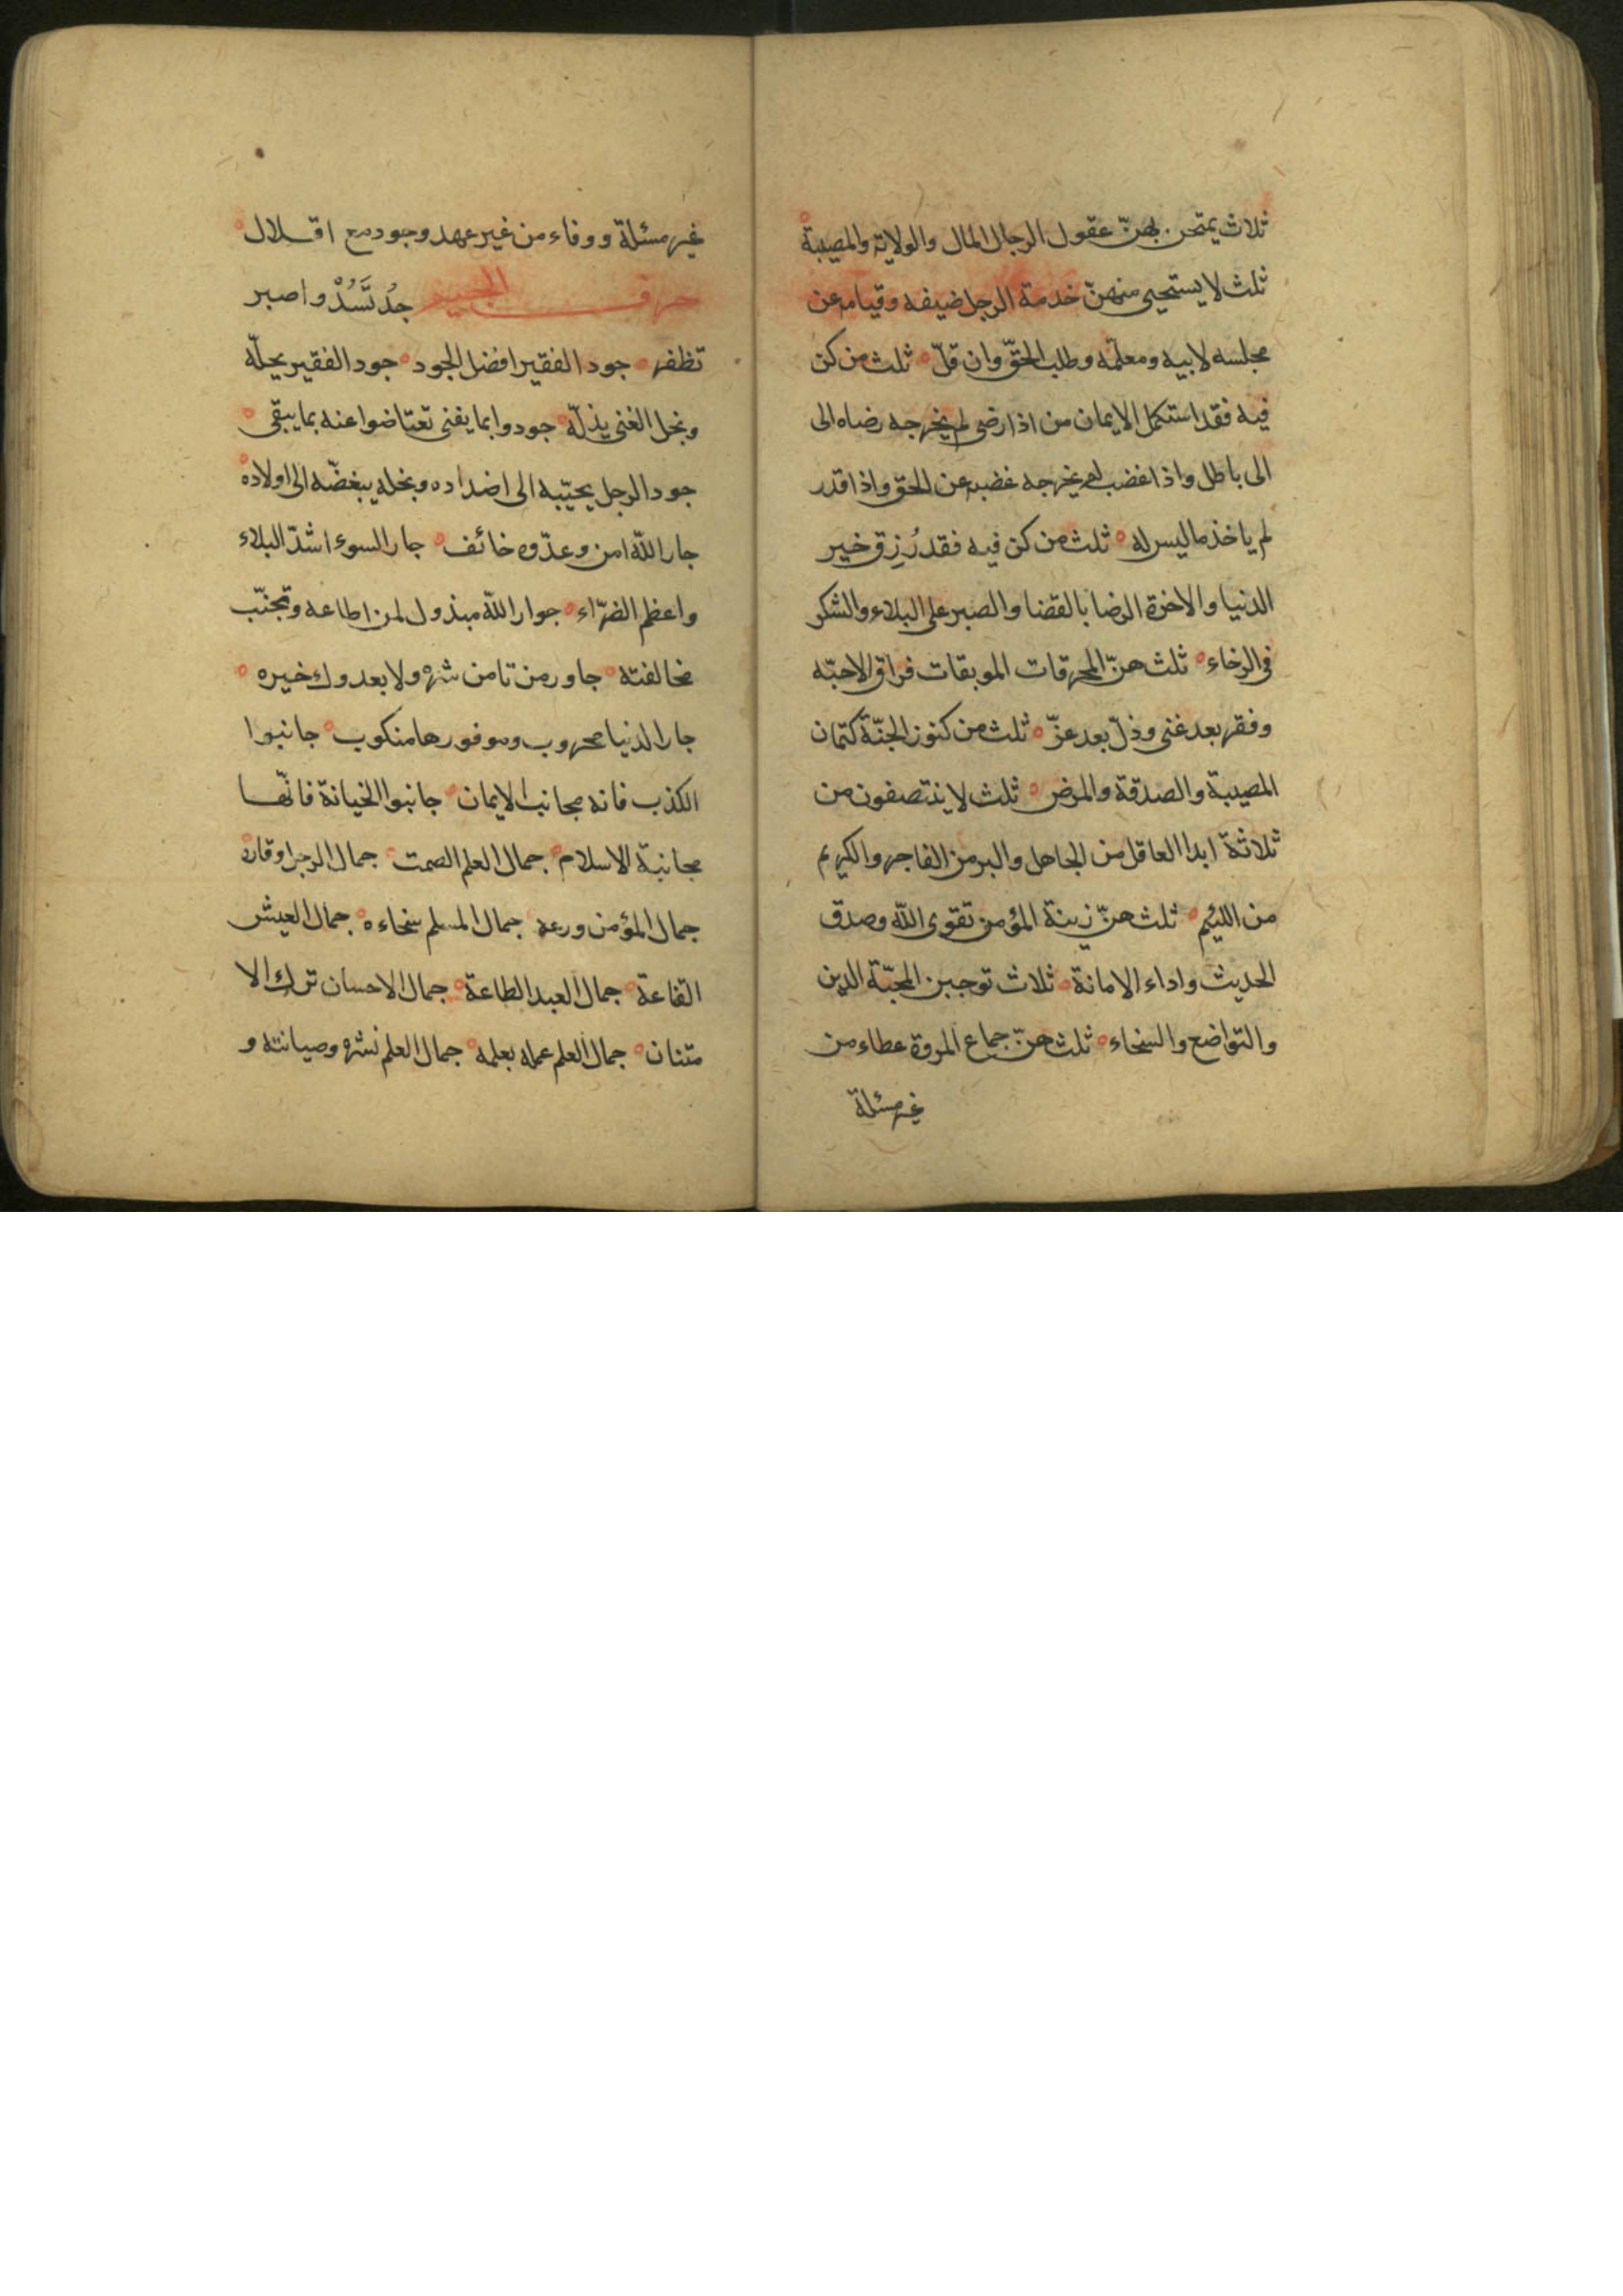 ثلاث يمتحن بهنّ عقول الرجال المال والولاية والمصيبة
ثلث لا يستحيى منهنّ خدمة الرجل ضيفه وقيامه عن
مجلسه لابيه ومعلّمه وطلب الحقّ وان قلّ ثلث من كن
فيه فقد استكمل الايمان من اذا رضى لم يخرجه رضاه الى
الى باطل واذا غضب لم يخرجه غضبه عن الحق واذا قدر
لم ياخذ ما ليس له ثلث من كن فيه فقد رُزق خير
الدنيا والاخرة الرضا بالقضا والصبر على البلاء والشكر
فى الرخاء ثلث هنّ المحرقات الموبقات فراق الاحبّه
وفقر بعد غنى وذلّ بعد عزّ ثلث من كنوز الجنّة كتمان
المصيبة والصدقة والمرض ثلث لا ينتصفون من
ثلاثة ابدا العاقل من الجاهل والبر من الفاجر والكريم
من اللئيم ثلث هنّ زينة المؤمن تقوى اللّه وصدق
الحديث واداء الامانة ثلاث توجبن المحبّة الدين
والتواضع والسخاء ثلث هنّ جماع المروة عطاء من
غير مسئلة
غير مسئلة ووفاء من غير عهد وجود مع اقلال
حرف الجيم جُد تَسُدْ واصبر
تظفر جود الفقير افضل الجود جود الفقير يجلّه
وبخل الغنى يذلّه جودوا بما يفنى تعتاضوا عنه بما يبقى
جود الرجل يحبّبه الى اضداده وبخله يبغضّه الى اولاده
جار اللّه امن وعدّوه خائف جار السوء اشدّ البلاء
واعظم الضرّاء جوار اللّه مبذول لمن اطاعه وتجنّب
مخالفته جاور من تامن شره ولا يعدوك خيره
جار الدنيا محروب وموفورها منكوب جانبوا
الكذب فانه مجانب الايمان جانبوا الخيانة فانّها
مجانبة الاسلام جمال العلم الصمت جمال الرجل وقاره
جمال المؤمن ورعه جمال المسلم سخاءه جمال العيش
القاعة جمال العبد الطاعة جمال الاحسان ترك الا
متنان جمال العلم عمله بعلمه جمال العلم نشره وصيانته و